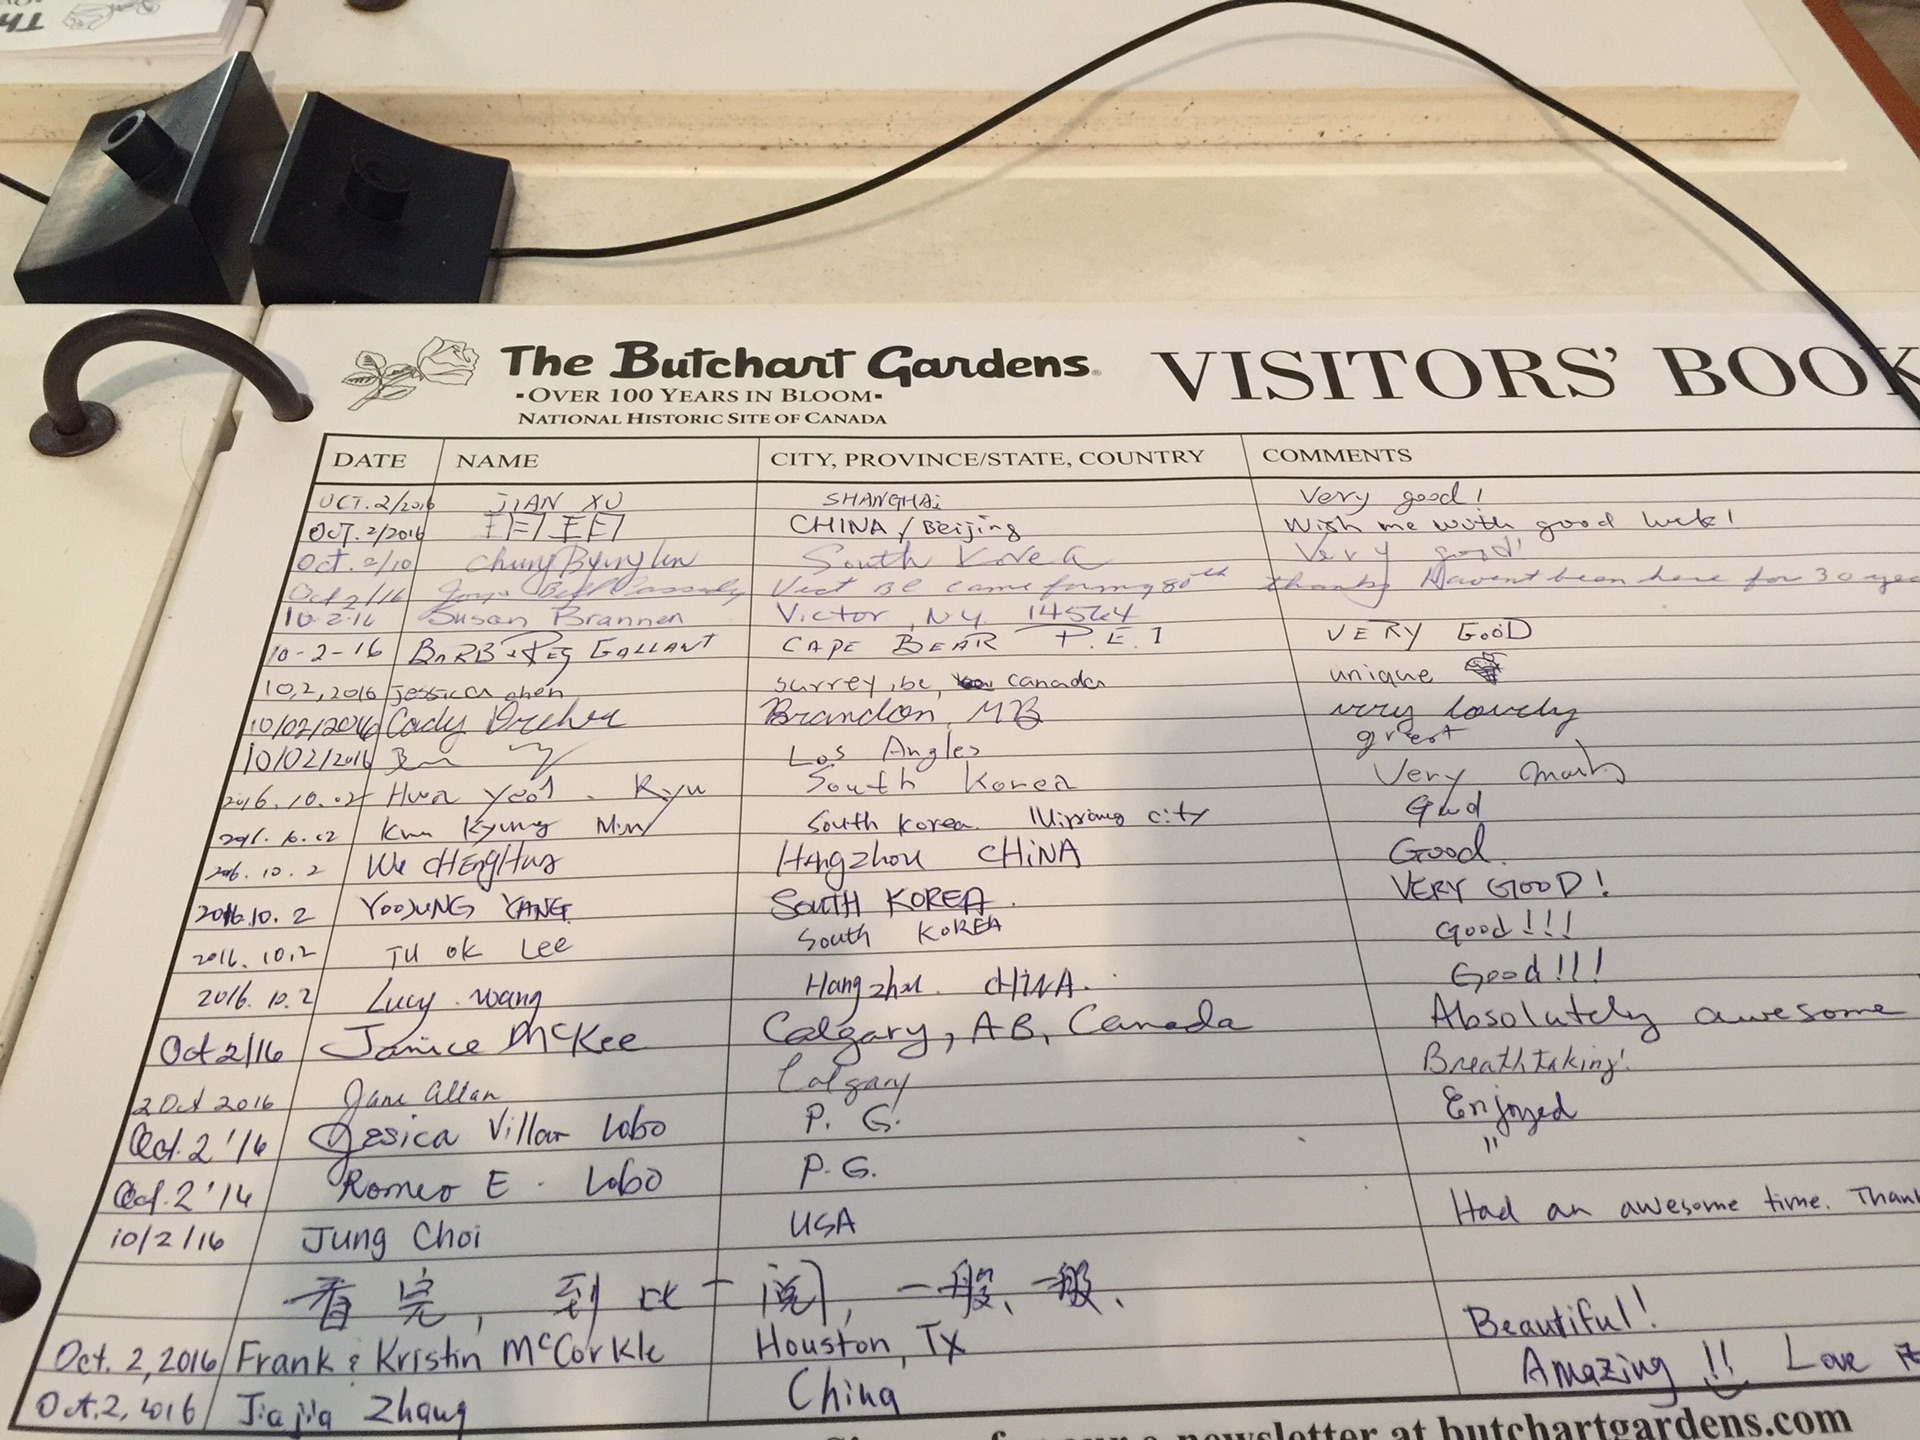 The Butchart Gardens
VISITORS' BOOK
OVER 100 YEARS IN BLOOM
NATIONAL HISTORIC SITE OF CANADA
DATE NAME CITY, PROVINCE/STATE, COUNTRY COMMENTS
OCT.2/2016 JIAN XU SHANGHAi Very good!
OCT.2/2016 CHINA/Beijing Wish me with good luck!
Oct. 2/10 South Korea Very good!
Oct 2/16 thanks Haven't been here for 30
10-2-16 Susan Brannen Victor, NY 14564
10-2-16 BARB + REG GALLANT CAPE BEAR P.E.I VERY GOOD
10,2,2016 jessica chen surrey, bc, canada unique
10/02/2016 Cody Brandon, MB very lovely
10/02/2016 Los Angles great
2016.10.02 Hwa Yeol. Ryu South Korea Very
Kyung South Korea. city
2016.10.2 Hangzhou CHiNA Good.
2016.10.2 YOOJUNG YANG SOUTH KOREA. VERY GOOD!
2016.10.2 JU OK Lee South KOREA Good!!!
2016.10.2 Lucy. wang CHiNA. Good!!!
Oct 2/16 Janice McKee Calgary, AB, Canada Absolutely awesome
2 Oct 2016 Jane Allan Calgary Breathtaking!
Oct. 2 '16 Jesica Villar Lobo P. G. Enjoyed
Oct. 2 '16 Romeo E. Lobo P.G. "
10/2/16 Jung Choi USA Had an awesome time.
看完, 到此一阅, 一般、一般、
Oct. 2, 2016 Frank & Kristin McCorkle Houston, TX Beautiful!
Oct.2, 2016 Jiajia Zhang China Amazing!! Love
newsletter at butchartgardens.com